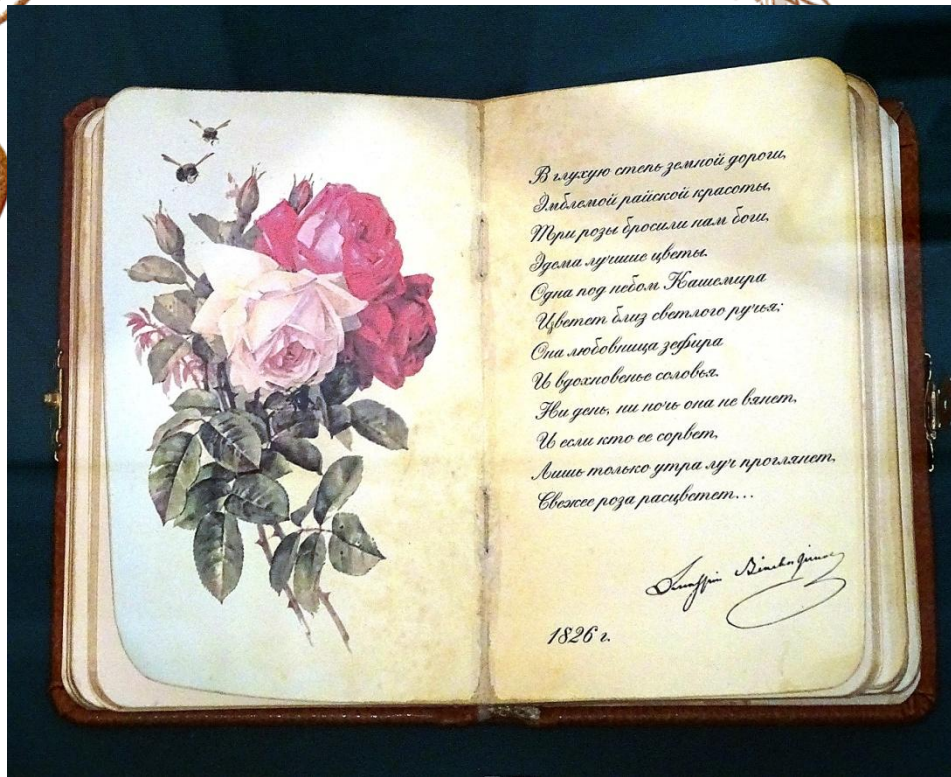 В глухую степь земной дороги,
Эмблемой райской красоты,
Три розы бросили нам боги,
Эдема лучшие цветы.
Одна под небом Кашемира
Цветет близ светлого ручья;
Она любовница зефира
И вдохновенье соловья.
Ни день, ни ночь она не вянет,
И если кто ее сорвет,
Лишь только утра луч проглянет,
Свежее роза расцветет...
1826 г.